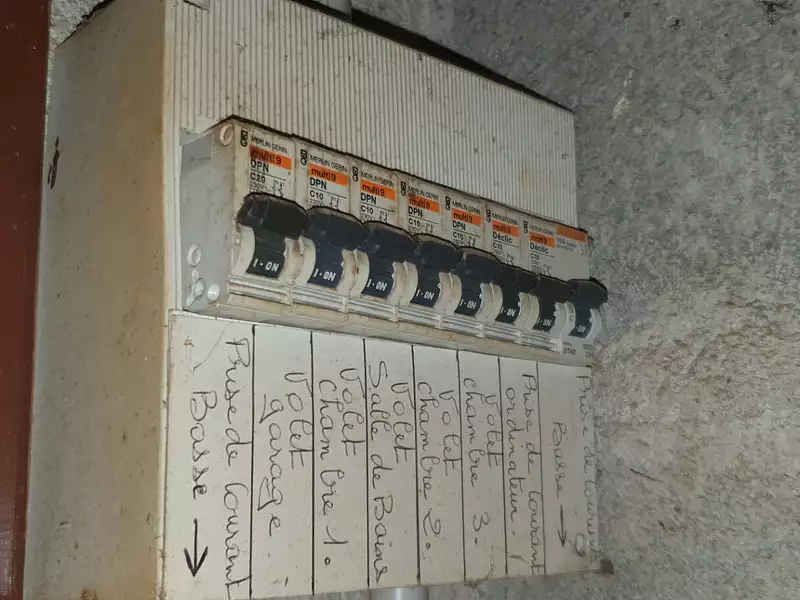 MERLIN GERIN
multi 9
DPN
C20
MERLIN GERIN
multi 9
DPN
C10
MERLIN GERIN
multi 9
DPN
C10
MERLIN GERIN
multi 9
DPN
C10
MERLIN GERIN
multi 9
DPN
C10
MERLIN GERIN
multi 9
Déclic
C10
MERLIN GERIN
multi 9
Déclic
C10
I·ON
I·ON
I·ON
I·ON
I·ON
I·ON
I·ON
I·ON
Prise de Courant
Basse →
Volet
garage.
Volet
chambre 1.
Volet
Salle de Bains
Volet
chambre 2.
Volet
chambre 3.
Prise de Courant
ordinateur !
Prise de Courant
Basse →